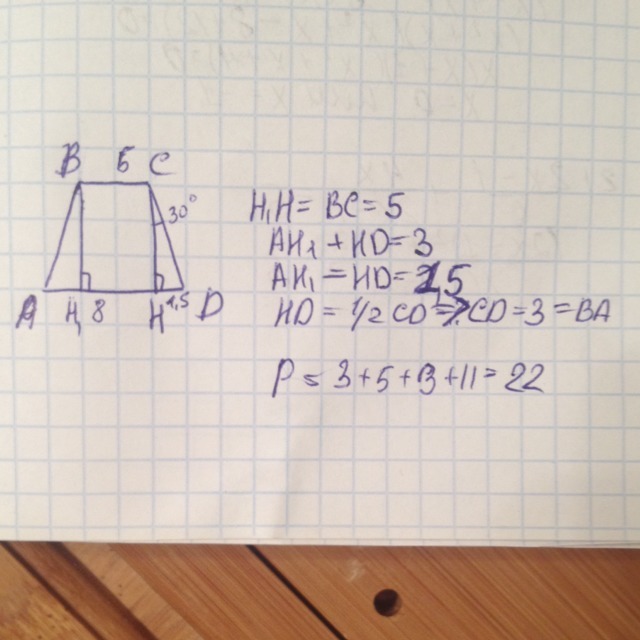 B 5 C
30°
A H₁ 8 H 1,5 D
H₁H = BC = 5
AH₁ + HD = 3
AH₁ = HD = 1,5
HD = 1/2 CD => CD = 3 = BA
P = 3 + 5 + 3 + 11 = 22